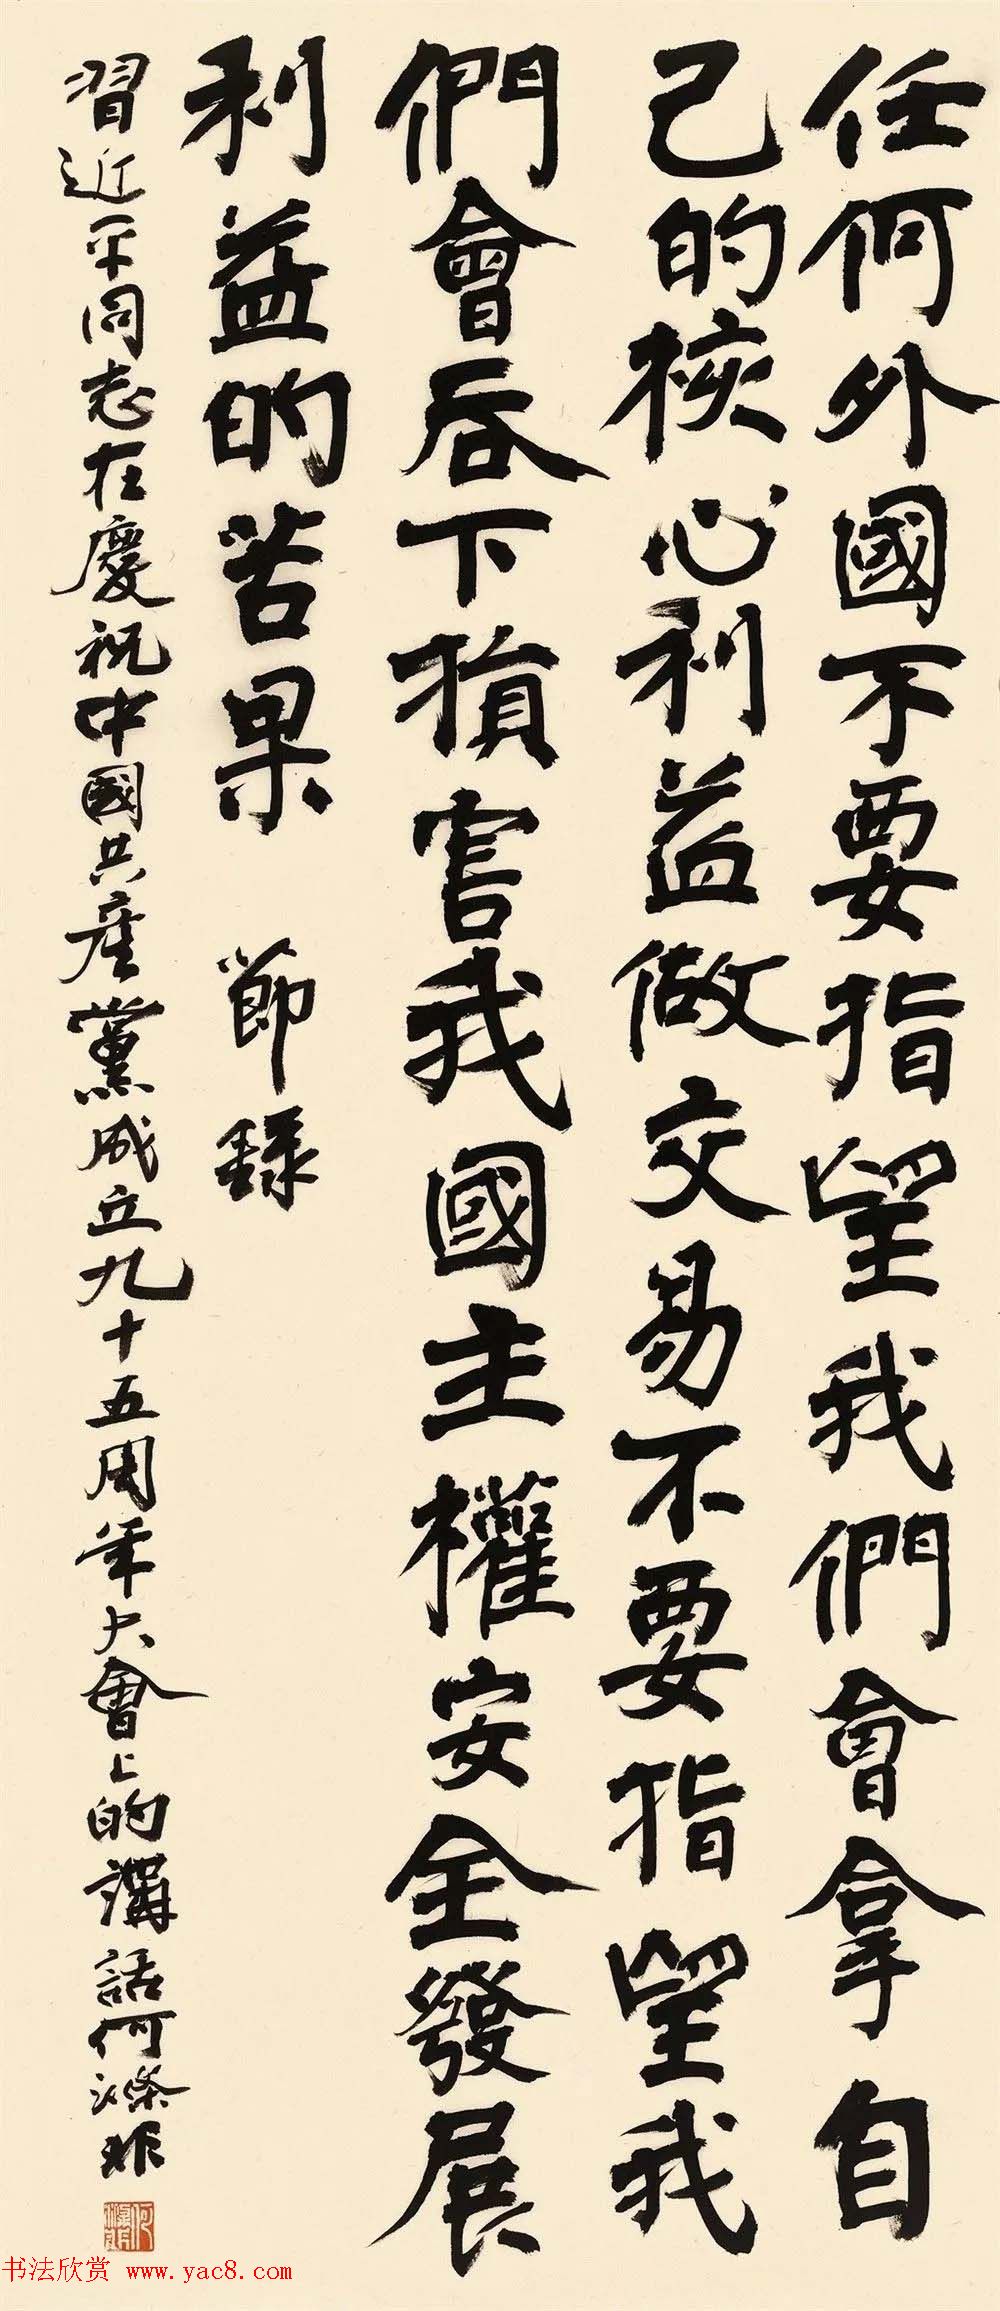 任何外國不要指望我們會拿自
己的核心利益做交易不要指望我
們會吞下損害我國主權安全發展
利益的苦果 節錄
習近平同志在慶祝中國共產黨成立九十五周年大會上的講話何滌非
書法欣赏 www.yac8.com